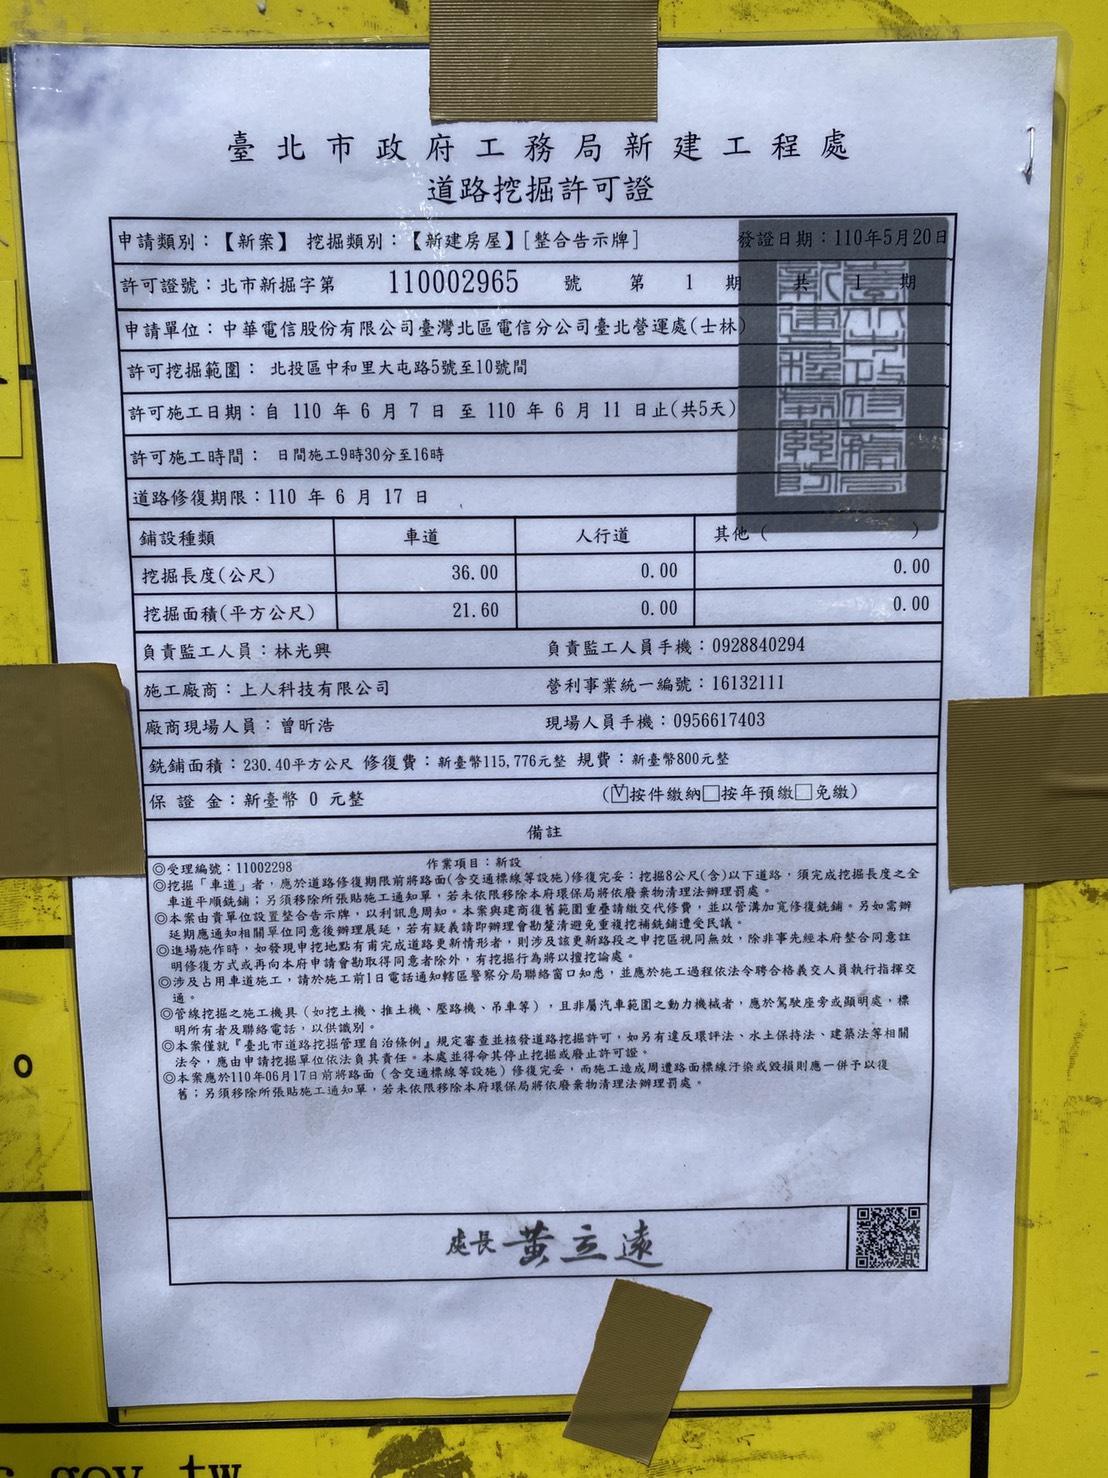 臺北市政府工務局新建工程處
道路挖掘許可證
申請類別：【新案】 挖掘類別：【新建房屋】[整合告示牌] 發證日期：110年5月20日
許可證號：北市新掘字第 110002965 號 第 1 期 共 1 期
申請單位：中華電信股份有限公司臺灣北區電信分公司臺北營運處(士林)
許可挖掘範圍： 北投區中和里大屯路5號至10號間
許可施工日期：自 110 年 6 月 7 日 至 110 年 6 月 11 日止(共5天)
許可施工時間： 日間施工9時30分至16時
道路修復期限：110 年 6 月 17 日
鋪設種類 車道 人行道 其他( )
挖掘長度(公尺) 36.00 0.00 0.00
挖掘面積(平方公尺) 21.60 0.00 0.00
負責監工人員：林光興 負責監工人員手機：0928840294
施工廠商：上人科技有限公司 營利事業統一編號：16132111
廠商現場人員：曾昕浩 現場人員手機：0956617403
銑鋪面積：230.40平方公尺 修復費：新臺幣115,776元整 規費：新臺幣800元整
保 證 金：新臺幣 0 元整 (☑按件繳納□按年預繳□免繳)
備註
◎受理編號：11002298 作業項目：新設
◎挖掘「車道」者，應於道路修復期限前將路面(含交通標線等設施)修復完妥：挖掘8公尺(含)以下道路，須完成挖掘長度之全
車道平順銑鋪；另須移除所張貼施工通知單，若未依限移除本府環保局將依廢棄物清理法辦理罰處。
◎本案由貴單位設置整合告示牌，以利訊息周知。本案與建商復舊範圍重疊請繳交代修費，並以管溝加寬修復銑鋪。另如需辦
延期應通知相關單位同意後辦理展延，若有疑義請即辦理會勘釐清避免重複挖補銑鋪遭受民議。
◎進場施作時，如發現申挖地點有甫完成道路更新情形者，則涉及該更新路段之申挖區視同無效，除非事先經本府整合同意註
明修復方式或再向本府申請會勘取得同意者除外，有挖掘行為將以擅挖論處。
◎涉及占用車道施工，請於施工前1日電話通知轄區警察分局聯絡窗口知悉，並應於施工過程依法令聘合格義交人員執行指揮交
通。
◎管線挖掘之施工機具（如挖土機、推土機、壓路機、吊車等），且非屬汽車範圍之動力機械者，應於駕駛座旁或顯明處，標
明所有者及聯絡電話，以供識別。
◎本案僅就『臺北市道路挖掘管理自治條例』規定審查並核發道路挖掘許可，如另有違反環評法、水土保持法、建築法等相關
法令，應由申請挖掘單位依法負其責任。本處並得命其停止挖掘或廢止許可證。
◎本案應於110年06月17日前將路面（含交通標線等設施）修復完妥，而施工造成周遭路面標線汙染或毀損則應一併予以復
舊；另須移除所張貼施工通知單，若未依限移除本府環保局將依廢棄物清理法辦理罰處。
處長 黃立遠
gov.tw